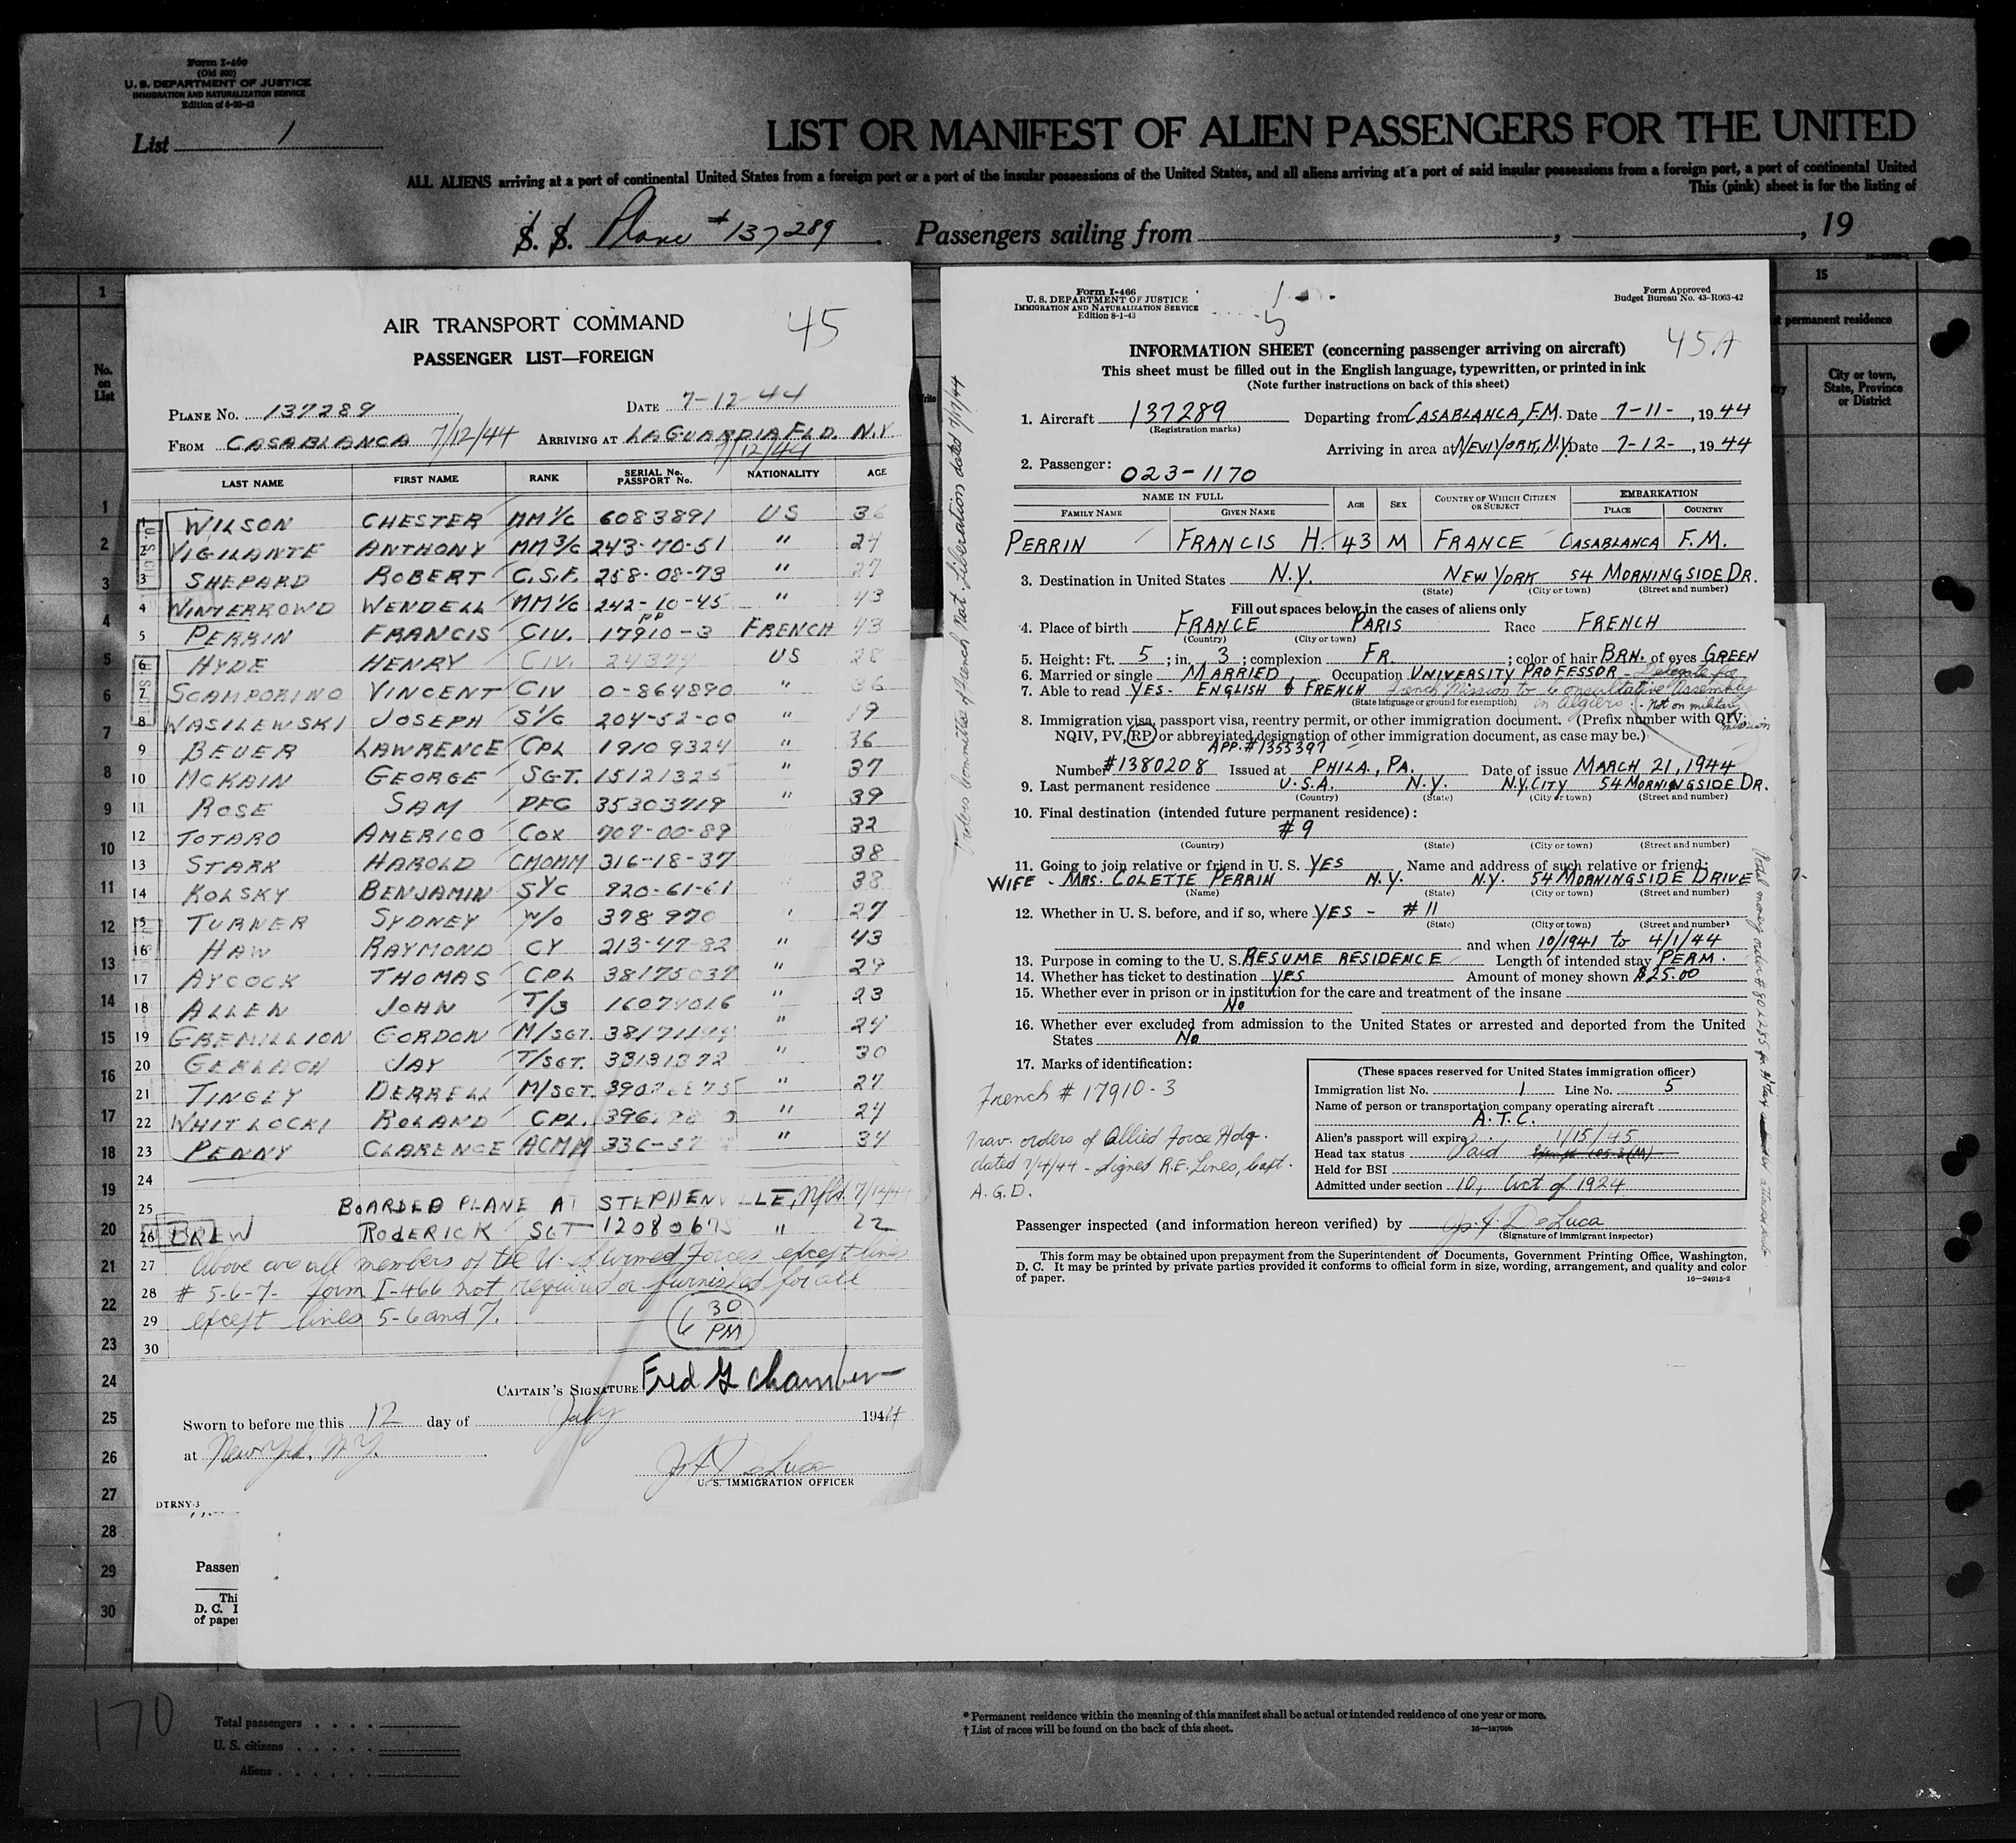 Form I-460
(Old 500)
U. S. DEPARTMENT OF JUSTICE
IMMIGRATION AND NATURALIZATION SERVICE
List 1
LIST OR MANIFEST OF ALIEN PASSENGERS FOR THE UNITED
ALL ALIENS arriving at a port of continental United States from a foreign port or a port of the insular possessions of the United States, and all aliens arriving at a port of said insular possessions from a foreign port, a port of continental United
This (pink) sheet is for the listing of
S. S. Plane # 137289. Passengers sailing from , , 19
AIR TRANSPORT COMMAND 45
PASSENGER LIST—FOREIGN
PLANE No. 137289 DATE 7-12-44
FROM CASABLANCA 7/12/44 ARRIVING AT LAGUARDIA FLD. N.Y.
7/12/44
LAST NAME FIRST NAME RANK SERIAL No. PASSPORT No. NATIONALITY AGE
1 WILSON CHESTER MM1/c 6083891 US 36
2 VIGILANTE ANTHONY MM3/c 243-70-51 " 24
3 SHEPARD ROBERT C.S.F. 258-08-73 " 27
4 WINTERROWD WENDELL MM1/c 242-10-45 " 43
5 PERRIN FRANCIS CIV. PP 17910-3 FRENCH 43
6 HYDE HENRY CIV. US 28
7 SCAMPORINO VINCENT CIV 0-864890 " 36
8 WASILEWSKI JOSEPH S1/c 204-52-00 " 19
9 BEUER LAWRENCE CPL 19109324 " 36
10 McKAIN GEORGE SGT. 15121325 " 37
11 ROSE SAM PFC 35303719 " 39
12 TOTARO AMERICO COX 707-00-89 " 32
13 STARK HAROLD CMOMM 316-18-37 38
14 KOLSKY BENJAMIN S1/c 920-61-61 38
15 TURNER SYDNEY W/O 378970 " 27
16 HAW RAYMOND CY 213-47-82 " 43
17 AYCOCK THOMAS CPL 38175037 " 29
18 ALLEN JOHN T/3 16074016 " 23
19 GREMILLION GORDON M/SGT. " 24
20 GERLACH JAY T/SGT. 33131392 " 30
21 TINGEY DERRELL M/SGT. " 27
22 WHITLOCK ROLAND CPL. " 24
23 PENNY CLARENCE ACMM " 34
24
25 BOARDED PLANE AT STEPHENVILLE, Nfld. 7/12/44
26 CREW RODERICK SGT 12080675 " 22
27 Above are all members of the U.S. Armed Forces except lines
28 # 5-6-7- Form I-466 not required or furnished for all
29 except lines 5-6 and 7.
30
6 30 PM
CAPTAIN'S SIGNATURE Fred G Chamber
Sworn to before me this 12 day of July 1944
at New York, N.Y.
Jos F DeLuca
U. S. IMMIGRATION OFFICER
DTRNY-3
Passen
Thi
D. C. I
of paper
Form I-466
U. S. DEPARTMENT OF JUSTICE
IMMIGRATION AND NATURALIZATION SERVICE
Edition 8-1-43
Form Approved
Budget Bureau No. 43-R063-42
45A
INFORMATION SHEET (concerning passenger arriving on aircraft)
This sheet must be filled out in the English language, typewritten, or printed in ink
(Note further instructions on back of this sheet)
1. Aircraft 137289 Departing from CASABLANCA, F.M. Date 7-11-, 1944
(Registration marks)
Arriving in area at NEW YORK, N.Y. Date 7-12-, 1944
2. Passenger: 023-1170
NAME IN FULL AGE SEX COUNTRY OF WHICH CITIZEN OR SUBJECT EMBARKATION
FAMILY NAME GIVEN NAME PLACE COUNTRY
PERRIN FRANCIS H. 43 M FRANCE CASABLANCA F.M.
3. Destination in United States N.Y. NEW YORK 54 MORNINGSIDE DR.
(State) (City or town) (Street and number)
Fill out spaces below in the cases of aliens only
4. Place of birth FRANCE PARIS Race FRENCH
(Country) (City or town)
5. Height: Ft. 5; in. 3; complexion FR.; color of hair BRN. of eyes GREEN
6. Married or single MARRIED, Occupation UNIVERSITY PROFESSOR - Delegate for
7. Able to read YES - ENGLISH & FRENCH French Mission to Consultative Assembly
(State language or ground for exemption) in Algiers - Not on military mission
8. Immigration visa, passport visa, reentry permit, or other immigration document. (Prefix number with QIV,
NQIV, PV, RP or abbreviated designation of other immigration document, as case may be.)
APP. #1355397
Number #1380208 Issued at PHILA., PA. Date of issue MARCH 21, 1944
9. Last permanent residence U.S.A. N.Y. N.Y. CITY 54 MORNINGSIDE DR.
(Country) (State) (City or town) (Street and number)
10. Final destination (intended future permanent residence):
#9
(Country) (State) (City or town) (Street and number)
11. Going to join relative or friend in U. S. YES Name and address of such relative or friend:
WIFE - MRS. COLETTE PERRIN N.Y. N.Y. 54 MORNINGSIDE DRIVE
(Name) (State) (City or town) (Street and number)
12. Whether in U. S. before, and if so, where YES - #11
(State) (City or town) (Street and number)
and when 10/1941 to 4/1/44
13. Purpose in coming to the U. S. RESUME RESIDENCE Length of intended stay PERM.
14. Whether has ticket to destination YES Amount of money shown $25.00
15. Whether ever in prison or in institution for the care and treatment of the insane
No
16. Whether ever excluded from admission to the United States or arrested and deported from the United
States No
17. Marks of identification:
French # 17910-3
Trav. orders of Allied Force Hdq.
dated 7/4/44 - signed R.E. Lines, Capt.
A.G.D.
(These spaces reserved for United States immigration officer)
Immigration list No. 1 Line No. 5
Name of person or transportation company operating aircraft
A.T.C.
Alien's passport will expire 1/15/45
Head tax status Paid Exempt 105.3(M)
Held for BSI
Admitted under section 10, Act of 1924
Passenger inspected (and information hereon verified) by Jos. F. DeLuca
(Signature of immigrant inspector)
This form may be obtained upon prepayment from the Superintendent of Documents, Government Printing Office, Washington,
D. C. It may be printed by private parties provided it conforms to official form in size, wording, arrangement, and quality and color
of paper. 16—24915-2
15
permanent residence
No. on List
City or town, State, Province or District
170
Total passengers
U. S. citizens
Aliens
* Permanent residence within the meaning of this manifest shall be actual or intended residence of one year or more.
† List of races will be found on the back of this sheet.